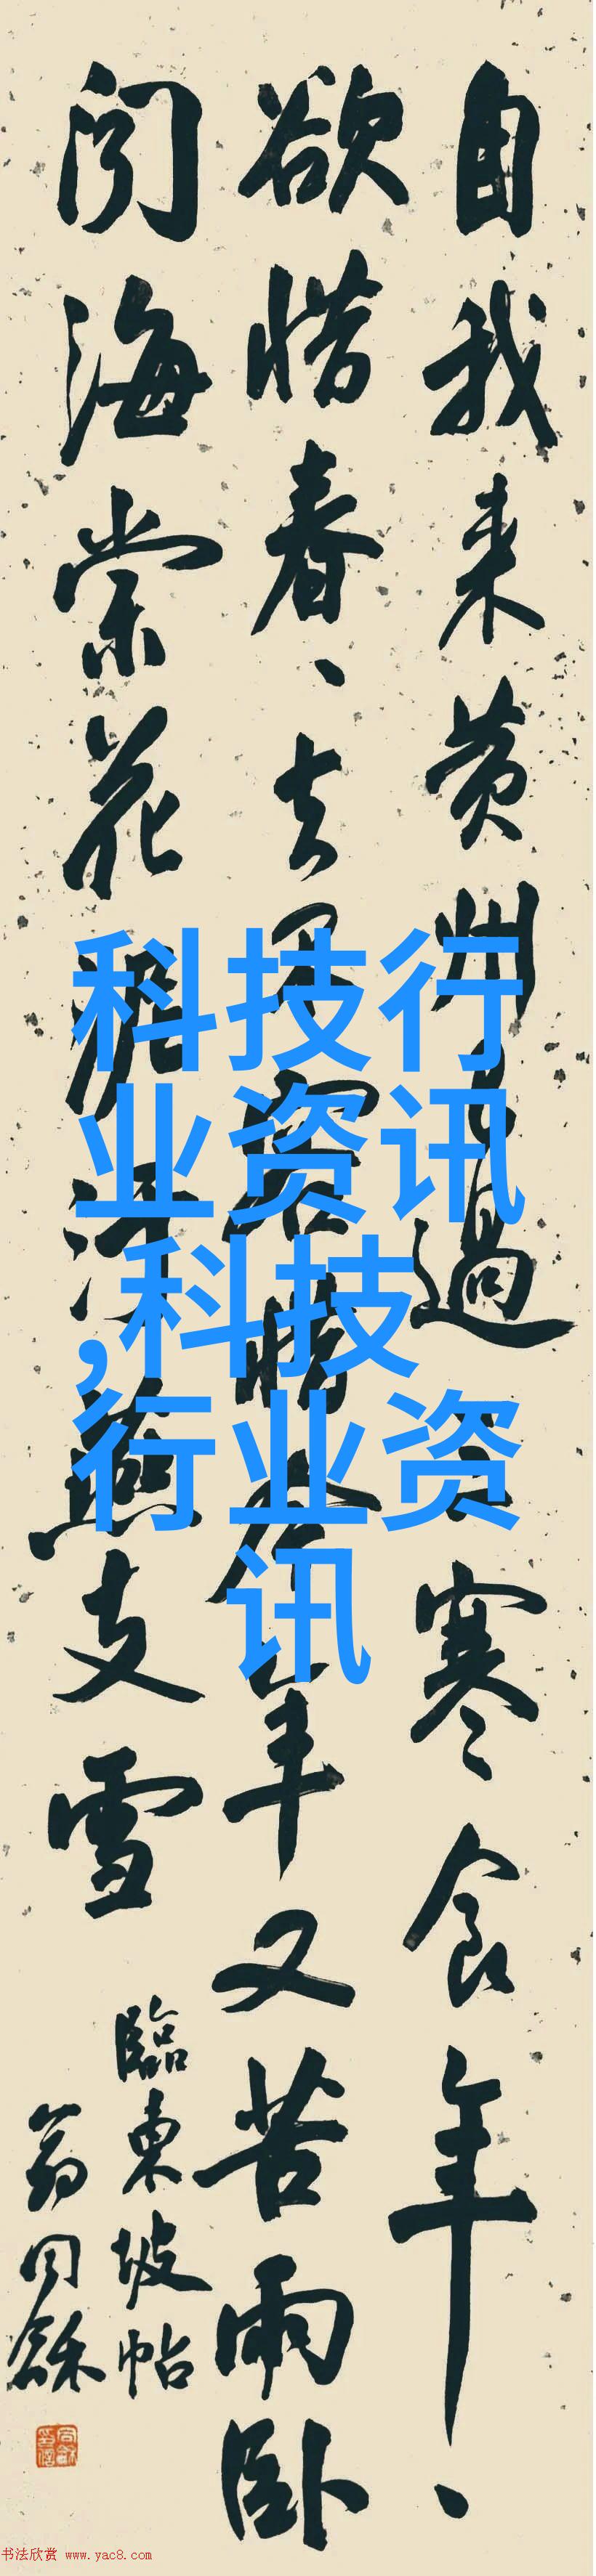 自我来黄州已過三寒食年、
欲惜春、去不容惜今年又苦雨卧
闻海棠花泥汙燕支雪
臨東坡帖
翁同龢
科技行
业资讯
,科技
行业资
讯
书法欣赏 www.yac8.com